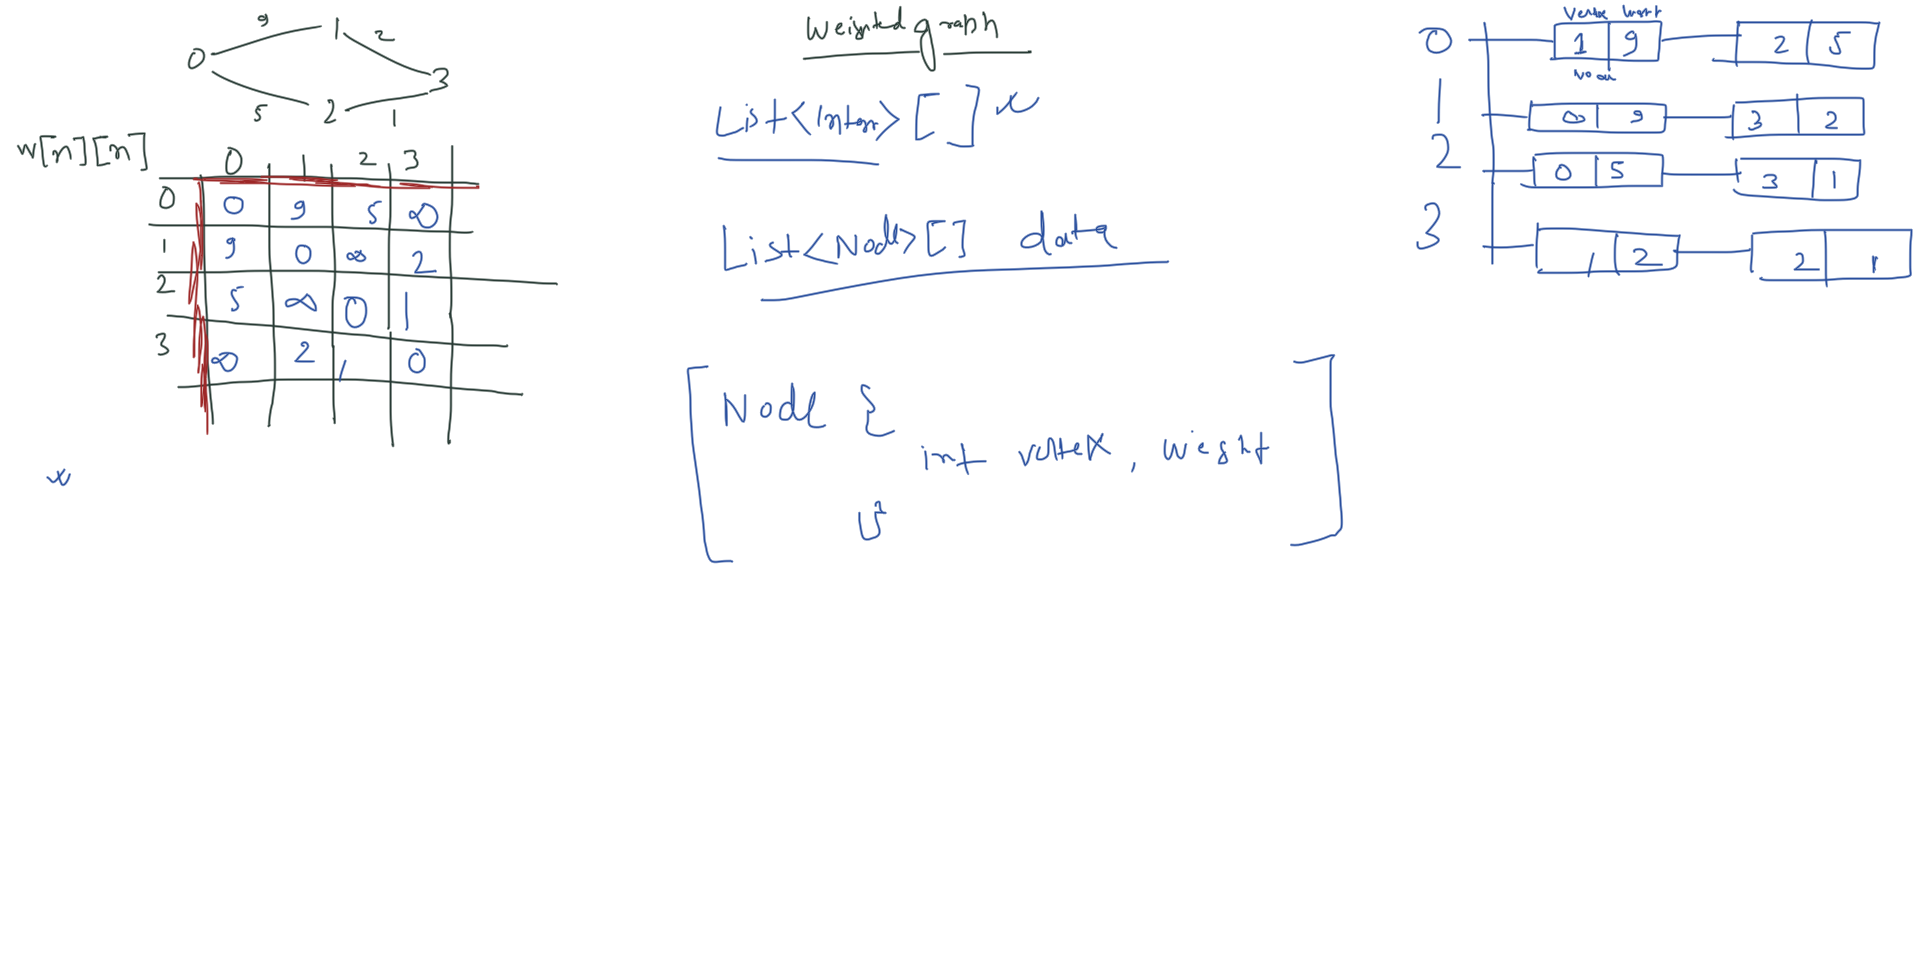 9
1
2
0
3
5
2
1
w[n][n]
0 1 2 3
0 0 9 5 ∞
1 9 0 ∞ 2
2 5 ∞ 0 1
3 ∞ 2 1 0
x
Weighted graph
List<Integer>[] x
List<Node>[] data
Node {
int vertex, weight
}
Vertex Weight
0 1 9 2 5
Node
1 0 9 3 2
2 0 5 3 1
3 1 2 2 1